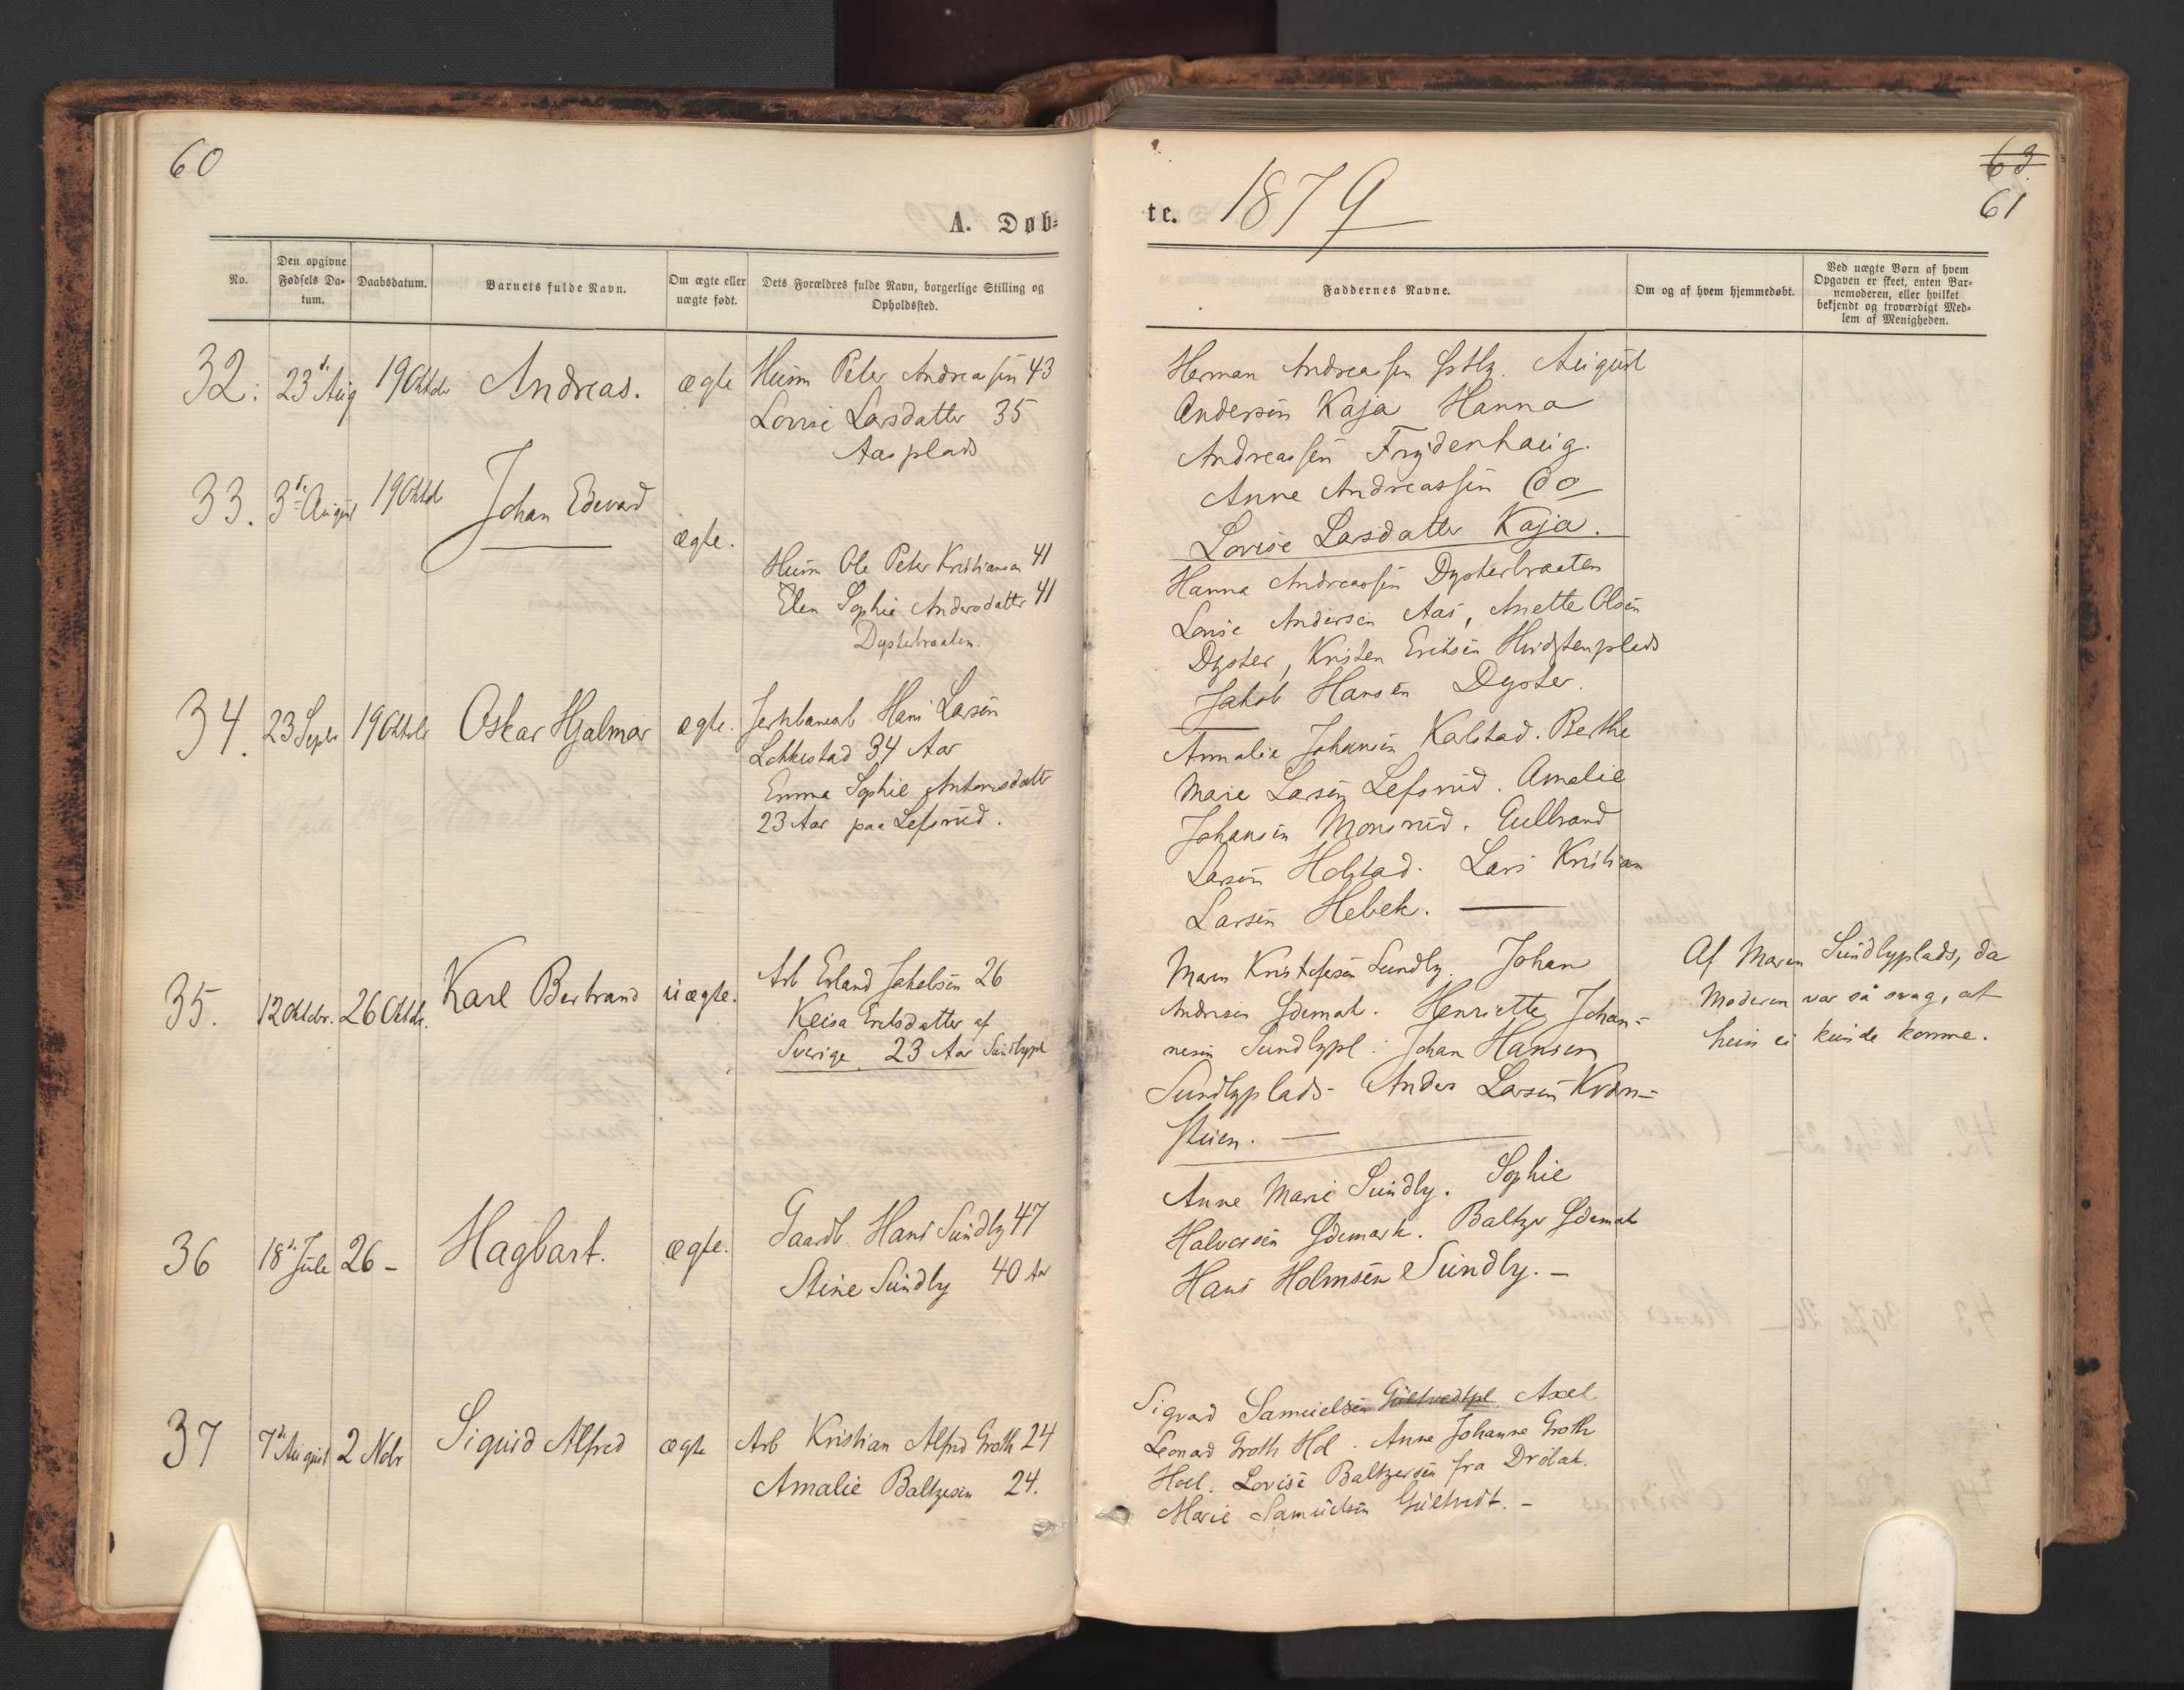 60
A. Døb-
No.
Den opgivne Fødsels Da-tum.
Daabsdatum.
Barnets fulde Navn.
Om ægte eller uægte født.
Dets Forældres fulde Navn, borgerlige Stilling og Opholdssted.
32. 23de Aug 19 Oktober Andreas. ægte Husm Peter Andreassen 43
Lovise Larsdatter 35
Aasplads
33. 3de August 19 Oktob Johan Edvard ægte.
Husm Ole Peter Kristiansen 41
Elen Sophie Andersdatter 41
Dysterbraaten.
34. 23 Septr 19 Oktobr Oskar Hjalmar ægte. Jernbanearb Hans Larsen
34 Aar
Emma Sophie Antonsdatt
23 Aar paa Lefsrud.
35. 12 Oktobr. 26 Oktbr. Karl Bertrand uægte. Arb Erland Jakobsen 26
Keisa Eriksdatter af
Sverige 23 Aar Sundbypl
36 18de Jule 26 - Hagbart. ægte. Gaardb. Hans Sundby 47
Stine Sundby 40 Aar
37 7de August 2 Nobr Sigurd Alfred ægte Arb Kristian Alfred Groth 24
Amalie Baltzesen 24.
te. 1879
63
61
Faddernes Navne.
Om og af hvem hjemmedøbt.
Ved uægte Børn af hvem
Opgaven er skeet, enten Bar-
nemoderen, eller hvilket
bekjendt og troværdigt Med-
lem af Menigheden.
Herman Andreassen August
Andersen Kaja Hanna
Andreassen Frydenhaug.
Anne Andreassen do
Lovise Larsdatter Kaja.
Hanna Andreassen Dysterbraaten
Lovise Andersen Aas, Anette Olsen
Dyster, Kristen Eriksen Hvidstenplads
Jakob Hansen Dyster.
Annalie Johansen Kolstad. Berthe
Marie Larsen Lefsrud. Amalie
Johansen Monsrud. Gulbrand
Larsen Holstad. Lars Kristian
Larsen Hebek.
Maren Kristofersen Sundby. Johan
Andresen Ødemark. Henriette Johan-
nesen Sundbypl. Johan Hansen
Sundbyplads- Anders Larsen Kvern-
stuen.
Af Maren Sundbyplads, da
Moderen var så svag, at
hun ei kunde komme.
Anne Marie Sundby. Sophie
Halvorsen Ødemark. Baltzer Ødemark
Hans Holmsen Sundby. -
Sigvard Samuelsen Gultvedtpl. Axel
Leonard Groth Hol. Anne Johanne Groth
Hoel. Lovise Baltzersen fra Drøbak.
Marie Samuelsen Gultvedt. -